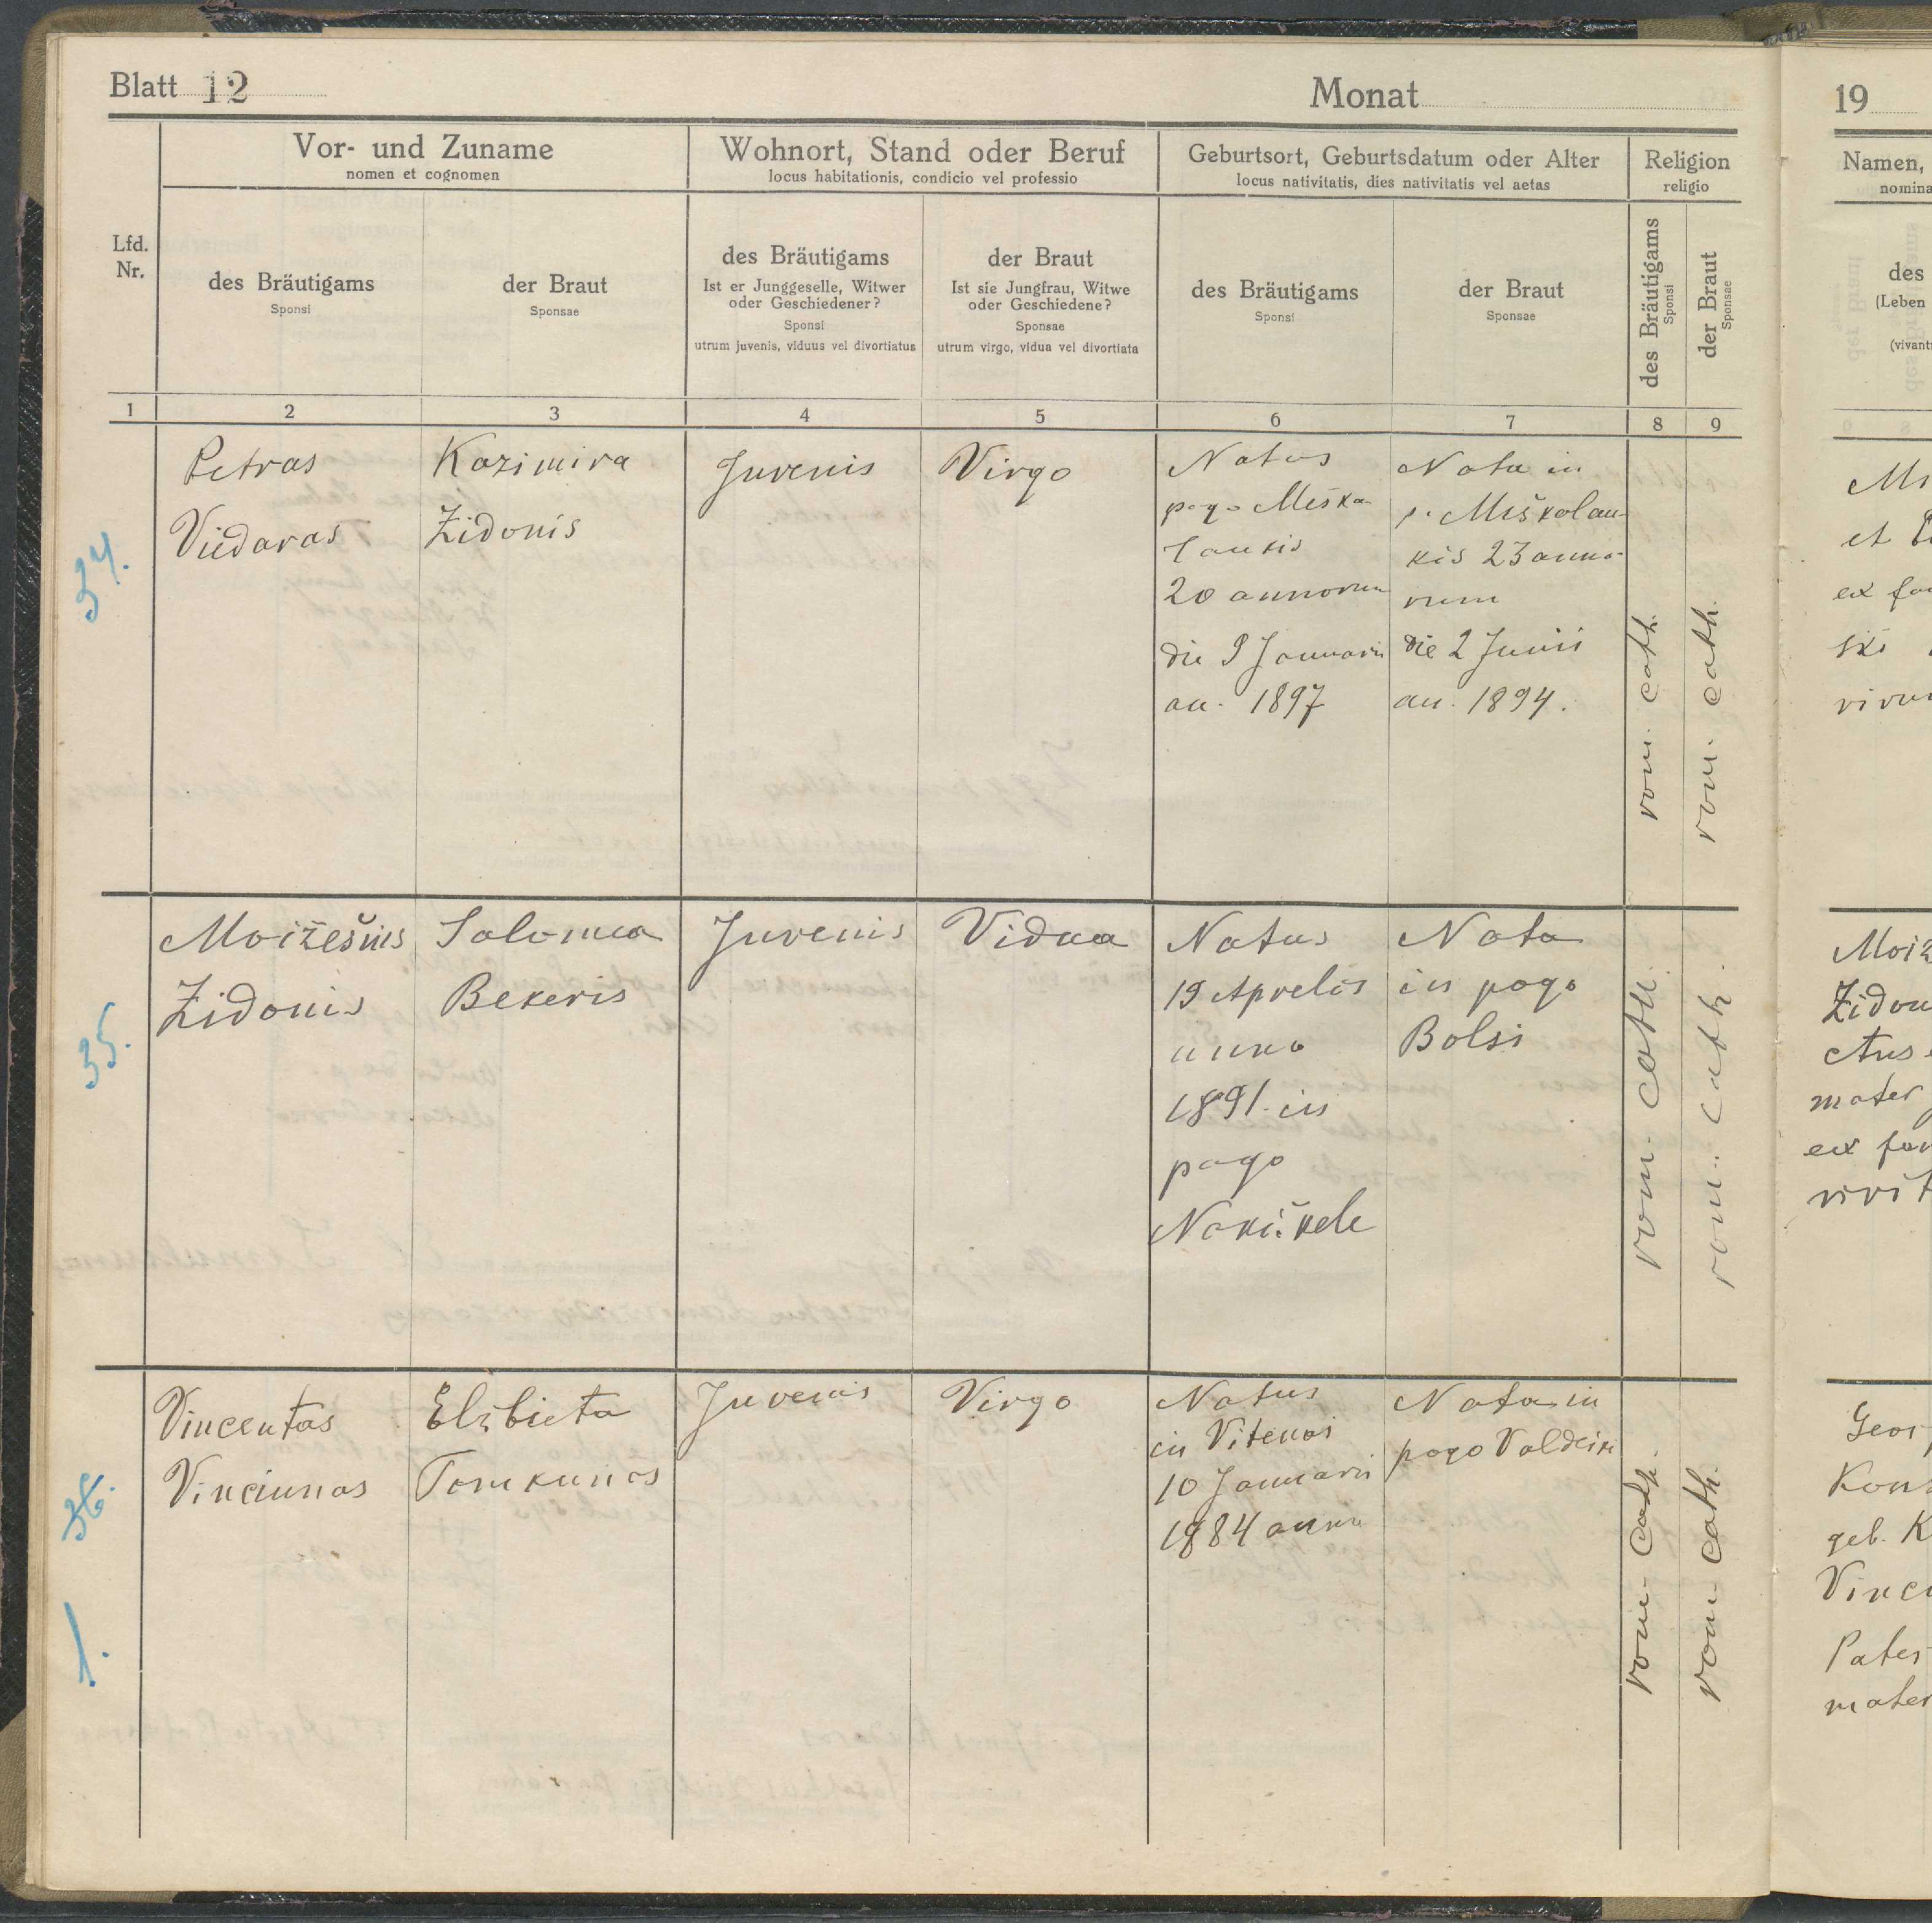 Blatt 12
Monat
Lfd.
Nr.
Vor- und Zuname
nomen et cognomen
des Bräutigams
Sponsi
der Braut
Sponsae
Wohnort, Stand oder Beruf
locus habitationis, condicio vel professio
des Bräutigams
Ist er Junggeselle, Witwer
oder Geschiedener?
Sponsi
utrum juvenis, viduus vel divortiatus
der Braut
Ist sie Jungfrau, Witwe
oder Geschiedene?
Sponsae
utrum virgo, vidua vel divortiata
Geburtsort, Geburtsdatum oder Alter
locus nativitatis, dies nativitatis vel aetas
des Bräutigams
Sponsi
der Braut
Sponsae
Religion
religio
des Bräutigams
Sponsi
der Braut
Sponsae
1 2 3 4 5 6 7 8 9
34.
Petras
Viedaras
Kazimira
Židonis
Juvenis
Virgo
Natus
pago Miška-
laukis
20 annorum
die 9 Januarii
an. 1897
Nata in
p. Miškolau-
kis 23 anno-
rum
die 2 Junii
an. 1894.
rom. cath.
rom. cath.
35.
Moižešius
Židonis
Salomea
Bekeris
Juvenis
Vidua
Natus
19 Aprelis
anno
1891 in
pago
Nakiškele
Nata
in pago
Bolsi
rom. cath.
rom. cath.
36.
1.
Vincentas
Vinciunas
Elzbieta
Tomkunas
Juvenis
Virgo
Natus
in Vitenai
10 Januarii
1884 anno
Nata in
pago Valdeik
rom. cath.
rom. cath.
19
Namen,
nomina
des
(Leben
(vivant
et
ex
ski
Moiž
Židon
mater
ex
Geor
Kons
geb. K
Vinci
Pater
mater